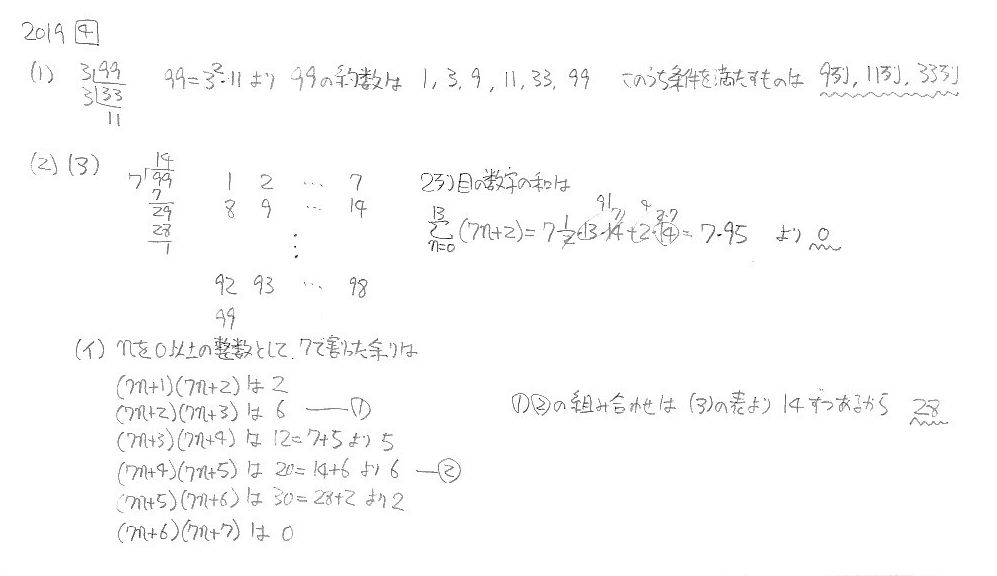 2019 4
(1) 3)99 99=3²・11より 99の約数は 1, 3, 9, 11, 33, 99 このうち条件を満たすものは 9列, 11列, 33列
3)33
11
(2)(3)
14
7)99
7
29
28
1
1 2 … 7
8 9 … 14
⋮
92 93 … 98
99
2列目の数字の和は
Σ[n=0→13](7n+2)=7・1/2・13・14+2・14=7・95 より 0
(イ) nを0以上の整数として、7で割った余りは
(7n+1)(7n+2)は 2
(7n+2)(7n+3)は 6 ―①
(7n+3)(7n+4)は 12=7+5より 5
(7n+4)(7n+5)は 20=14+6より 6 ―②
(7n+5)(7n+6)は 30=28+2より2
(7n+6)(7n+7)は 0
①②の組み合わせは (3)の表より 14ずつあるから 28